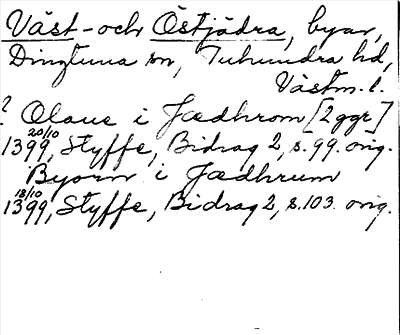 Väst- och Östjädra, byar,
Dingtuna sn, Tuhundra hd,
Västm. l.
? Olaue i Jædhrom [2 ggr]
20/10
1399, Styffe, Bidrag 2, s. 99. orig.
Byorn i Jædhrum
18/10
1399, Styffe, Bidrag 2, s. 103. orig.